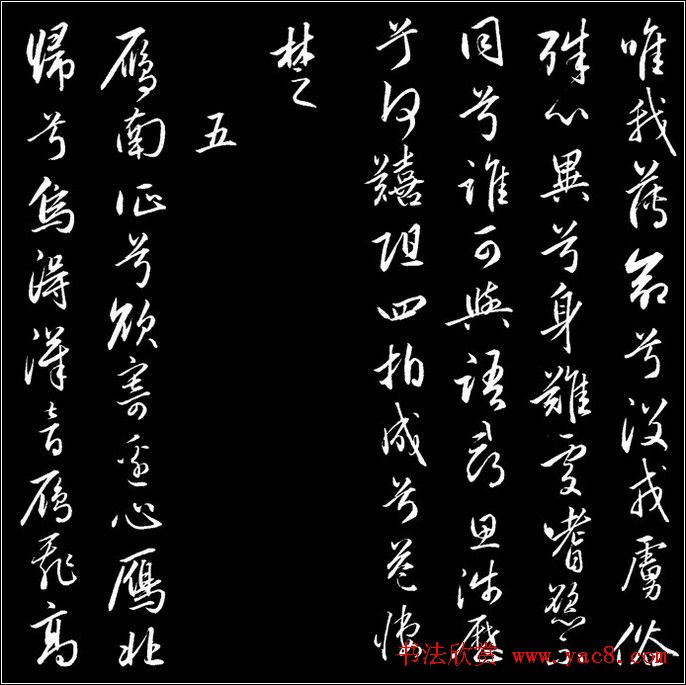 唯我薄命兮没戎虜俗
殊心異兮身難處嗜慾不
同兮誰可與語尋思涉歷
兮何囏阻四拍成兮益悽
楚
五
鴈南征兮欲寄邊心鴈北
歸兮為得漢音鴈飛高
书法欣赏 www.yac8.com